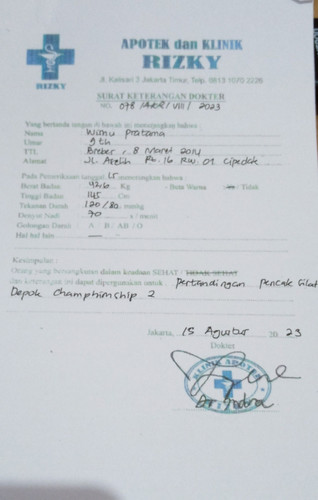 APOTEK dan KLINIK
RIZKY
RIZKY
Jl. Kalisari 3 Jakarta Timur, Telp. 0813 1070 2226
SURAT KETERANGAN DOKTER
NO. 078 / / VIII / 2023
Yang bertanda tangan di bawah ini menerangkan bahwa :
Nama Wisnu Pratama
Umur 9 th
TTL , 8 Maret 2014
Alamat JL. Rt. 16 Rw. 01 Cipedak
Pada Pemeriksaan tanggal 15 menerangkan bahwa :
Berat Badan Kg - Buta Warna : Ya / Tidak
Tinggi Badan 145 Cm
Tekanan Darah 120/80 mmHg
Denyut Nadi 70 x / menit
Golongan Darah A B / AB / O
Hal hal lain — -
Kesimpulan :
Orang yang bersangkutan dalam keadaan SEHAT / TIDAK SEHAT
dan keterangan ini dapat dipergunakan untuk : Pertandingan Pencak Silat
Depok Championship 2
Jakarta, 15 Agustus 20 23
Dokter
KLINIK